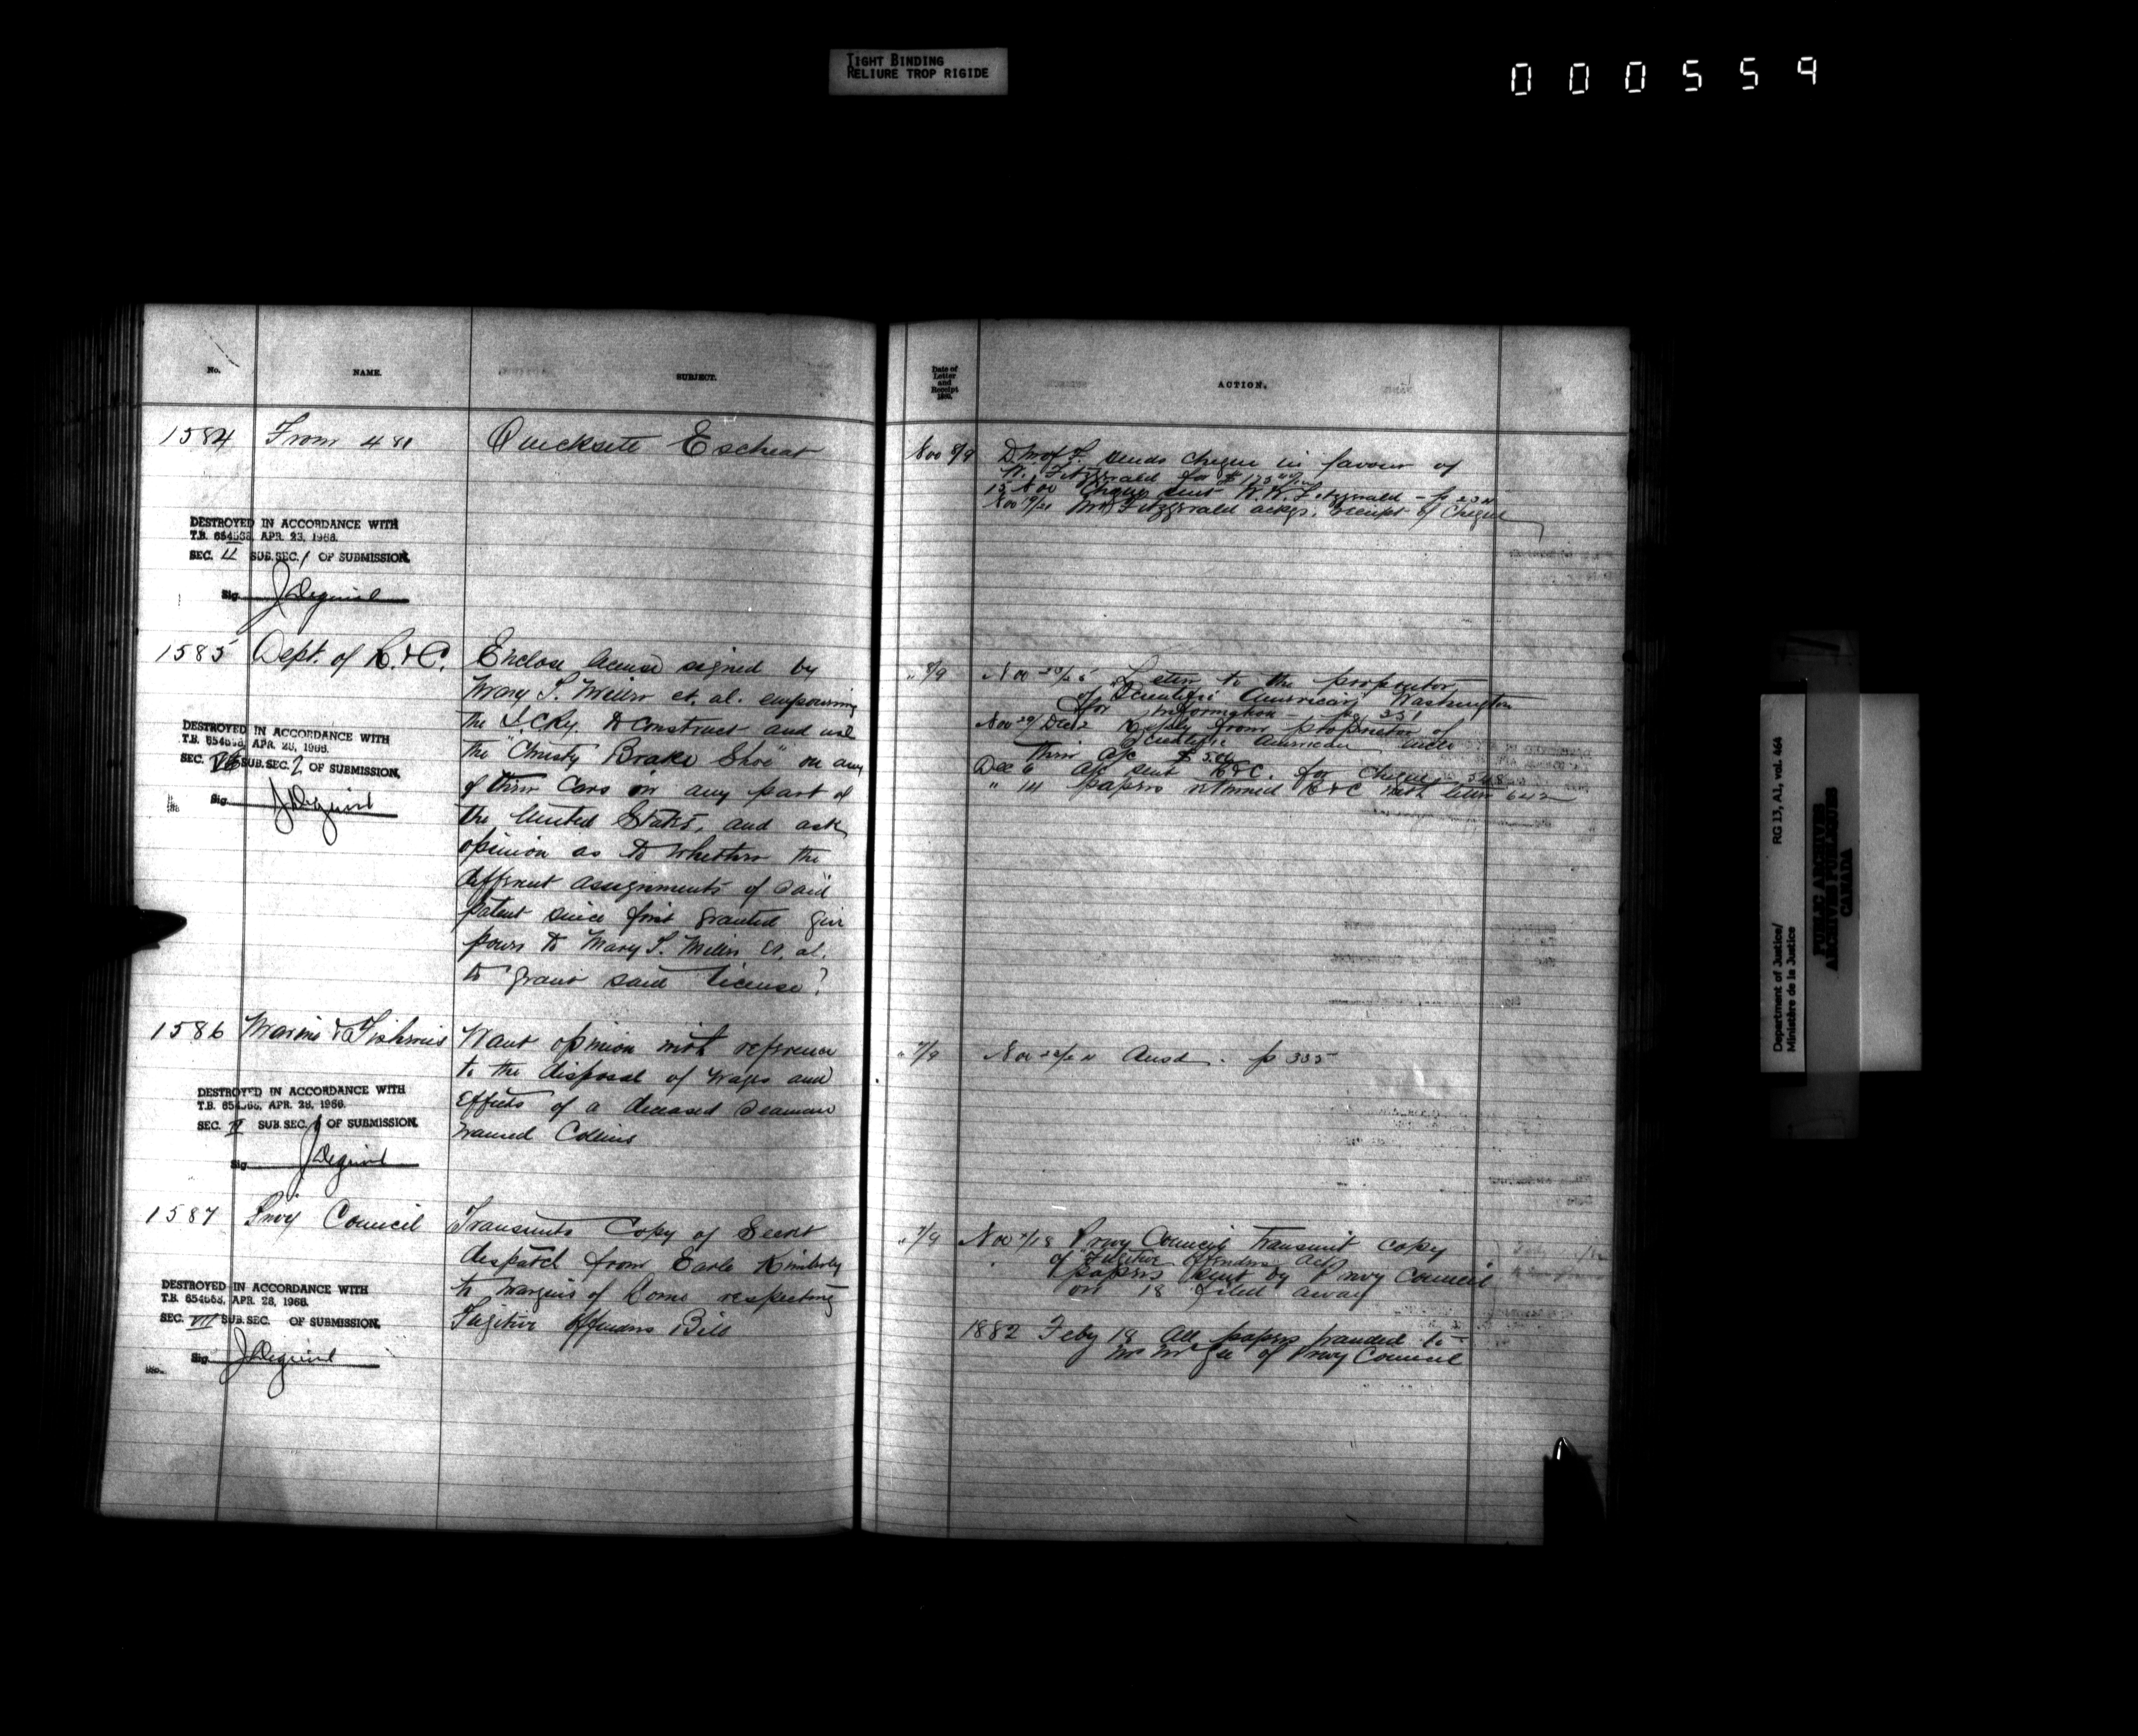 TIGHT BINDING
RELIURE TROP RIGIDE
000559
No. NAME. SUBJECT.
1584 From 481 Quicksete Escheat
DESTROYED IN ACCORDANCE WITH
T.B. APR. 23, 1968.
SEC. II SUB.SEC. 1 OF SUBMISSION.
Sig.
1585 Dept. of R. & C. Enclose license signed by
Mary S. Miller et. al. empowering
the I.C.Ry. to construct and use
the "Christy Brake Shoe" on any
of their Cars in any part of
the United States, and ask
opinion as to whether the
different assignments of said
patent since first granted give
power to Mary S. Miller et. al.
to grant said license?
DESTROYED IN ACCORDANCE WITH
T.B. APR. 28, 1968.
SEC. SUB.SEC. 2 OF SUBMISSION.
Sig.
1586 Marine & Fisheries Want opinion with reference
to the disposal of wages and
Effects of a deceased seaman
named Collins
DESTROYED IN ACCORDANCE WITH
T.B. APR. 28, 1968.
SEC. SUB.SEC. OF SUBMISSION.
Sig.
1587 Privy Council Transmits Copy of Secret
dispatch from Earle Kimberly
to Marquis of Lorne respecting
Fugitive Offenders Bill
DESTROYED IN ACCORDANCE WITH
T.B. APR. 28, 1968.
SEC. VII SUB.SEC. OF SUBMISSION.
Sig.
Date of
Letter
and
Receipt
188 .
ACTION.
Nov 8/9 D M of F. sends cheque in favour of
W. Fitzgerald for $
15 Nov Cheque sent W. W. Fitzgerald - p
Nov 19/21 Mr Fitzgerald ackgs. receipt of Cheque
" 8/9 Nov Letter to the proprietor
of Scientific American, Washington
for information - pg 351
Nov 29/Dec 2 Reply from proprietor of
Scientific American
their a/c $ 5.00
Dec 6 a/c sent R & C. for Cheque 548
" 14 papers returned R & C with letter 642
" 7/9 Nov Ansd. p 335
" 7/9 Nov 7/18 Privy Council Transmit copy
of "Fugitive Offenders Act"
papers sent by Privy Council
on 18 filed away
1882 Feby 18 All papers handed to
Mr McGee of Privy Council
Department of Justice/
Ministère de la Justice
RG 13, A1, vol. 464
PUBLIC ARCHIVES
ARCHIVES PUBLIQUES
CANADA